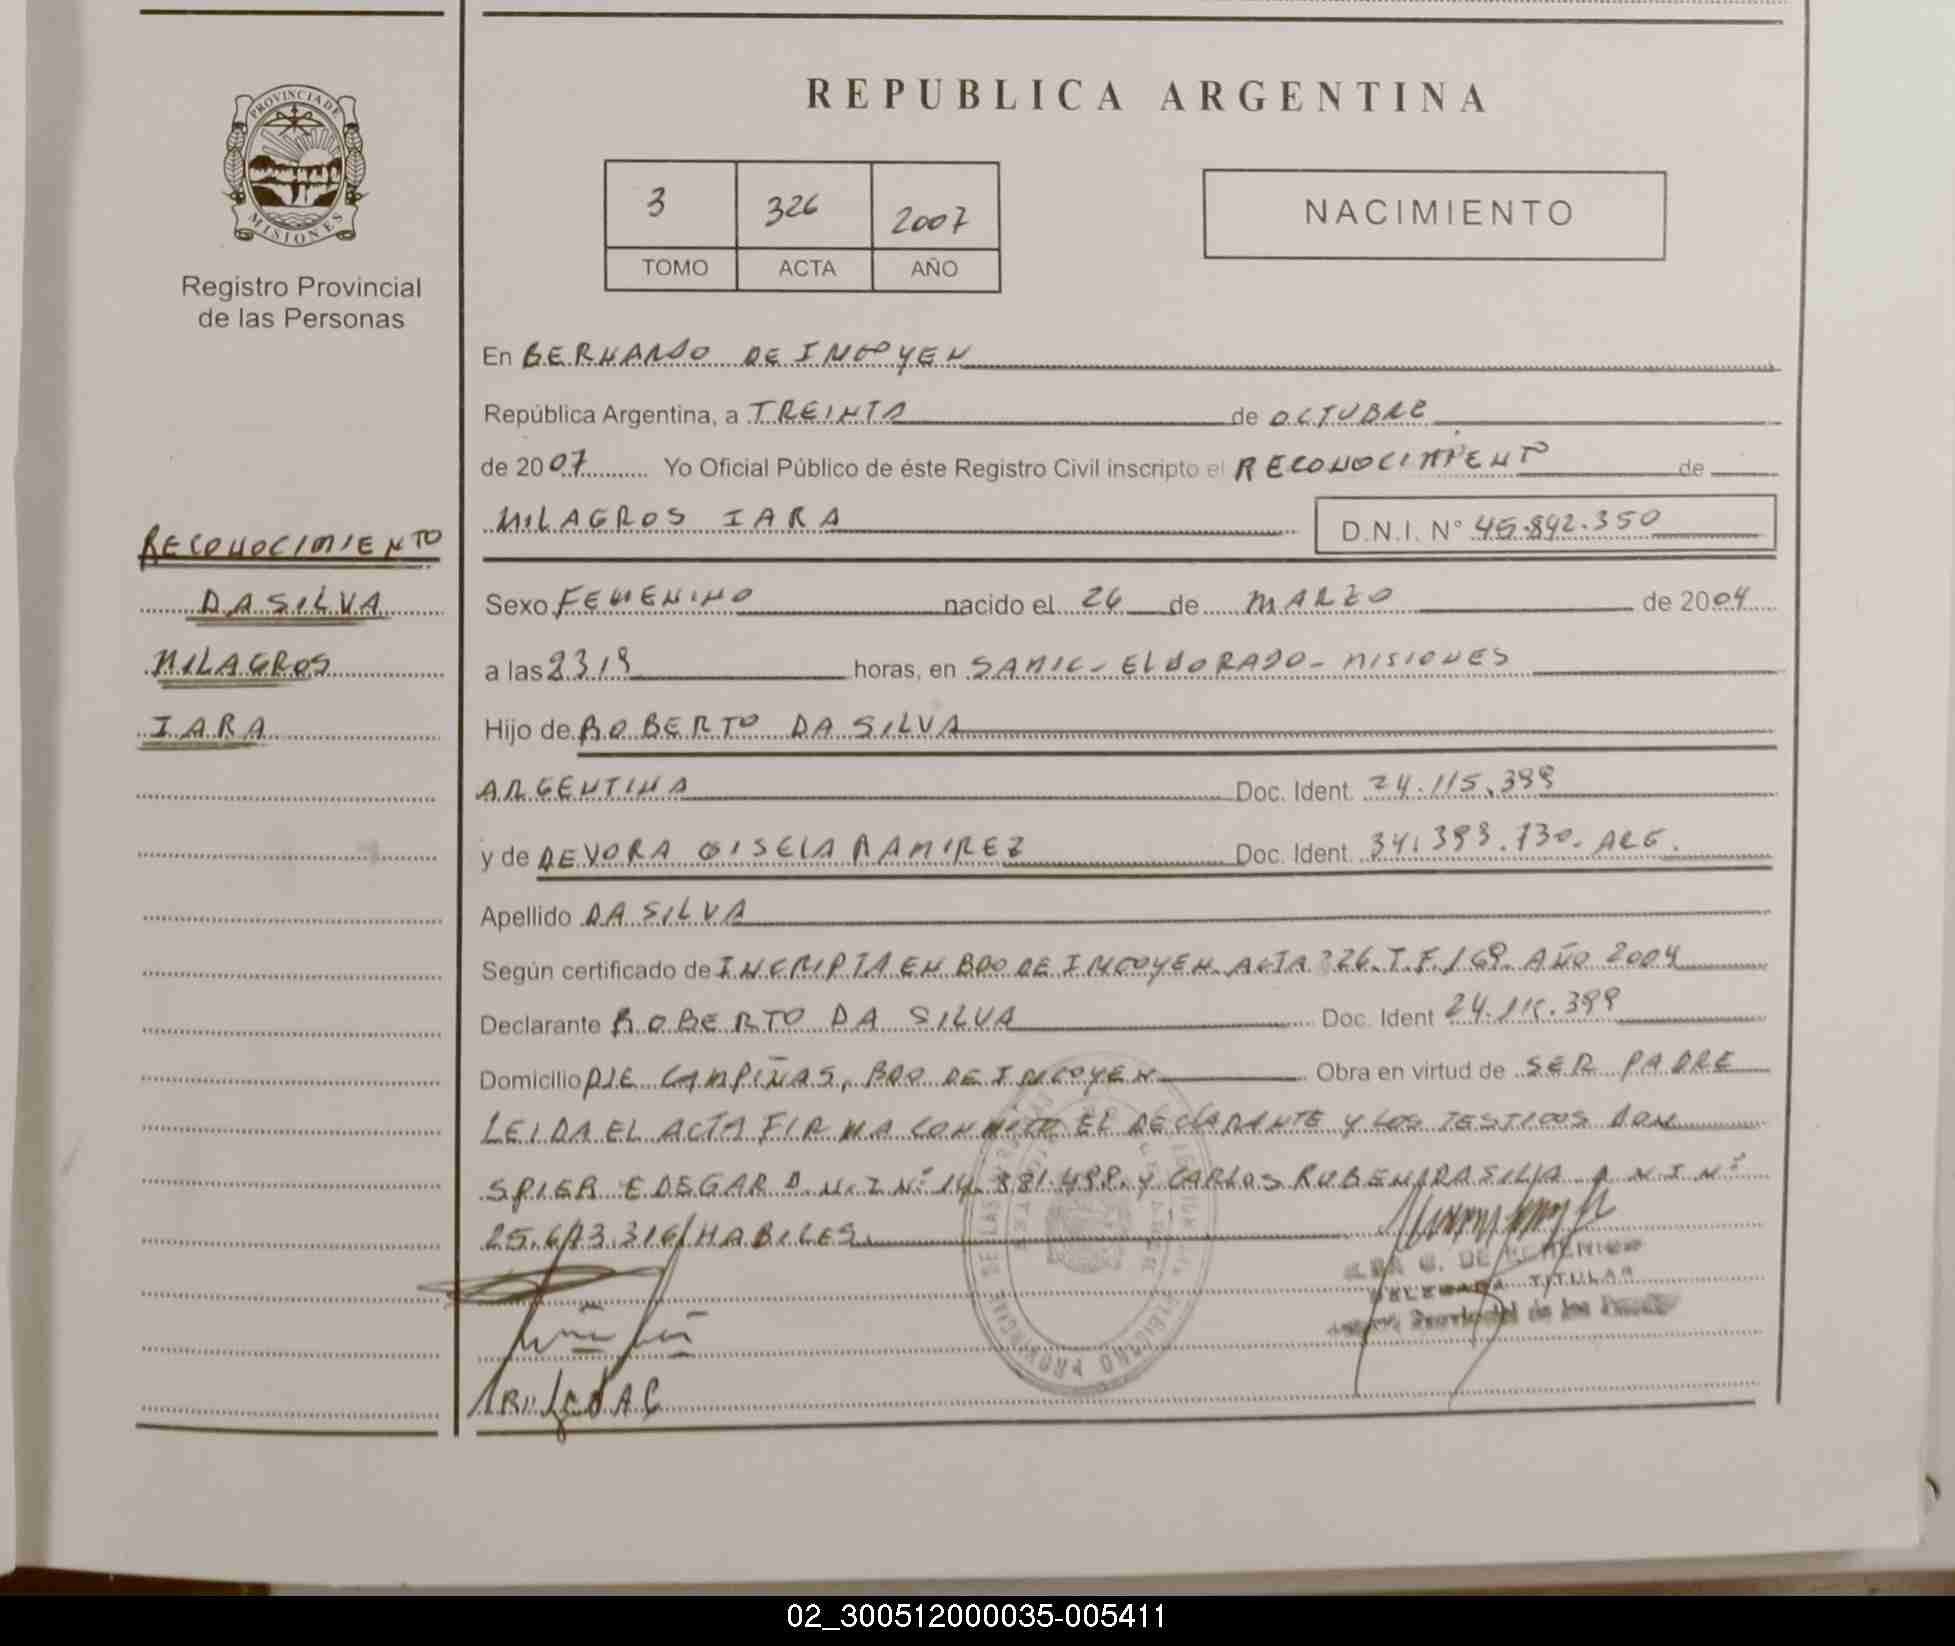 REPUBLICA ARGENTINA
PROVINCIA DE
MISIONES
Registro Provincial
de las Personas
3 326 2007
TOMO ACTA AÑO
NACIMIENTO
En BERNARDO DE IRIGOYEN
República Argentina, a TREINTA de OCTUBRE
de 2007 Yo Oficial Público de éste Registro Civil inscripto el RECONOCIMIENTO de
MILAGROS IARA D.N.I. N° 45.892.350
RECONOCIMIENTO
DA SILVA
MILAGROS
IARA
Sexo FEMENINO nacido el 26 de MARZO de 2004
a las 23,15 horas, en SAMIC - ELDORADO - MISIONES
Hijo de ROBERTO DA SILVA
ARGENTINA Doc. Ident. 24.115.399
y de DEVORA GISELA RAMIREZ Doc. Ident. 34.393.730. ARG.
Apellido DA SILVA
Según certificado de INCRIPTA EN BDO DE IRIGOYEN ACTA 226. T.F. 169. AÑO 2004
Declarante ROBERTO DA SILVA Doc. Ident 24.115.399
Domicilio PJE CAMPIÑAS, BDO DE IRIGOYEN Obra en virtud de SER PADRE
LEIDA EL ACTA FIRMA CONMIGO EL DECLARANTE Y LOS TESTIGOS DON
SPIER EDEGAR D.N.I N° 14.881.498. Y CARLOS RUBEN DASILVA D N I N°
25.673.316/HABILES
DELEGADA TITULAR
Provincial de las
02_300512000035-005411